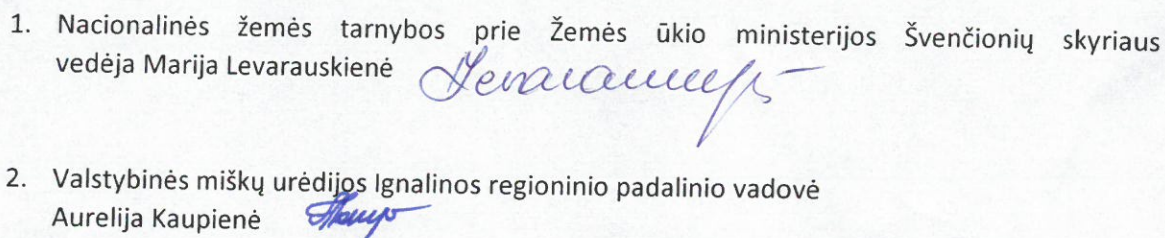 1. Nacionalinės žemės tarnybos prie Žemės ūkio ministerijos Švenčionių skyriaus
vedėja Marija Levarauskienė
2. Valstybinės miškų urėdijos Ignalinos regioninio padalinio vadovė
Aurelija Kaupienė